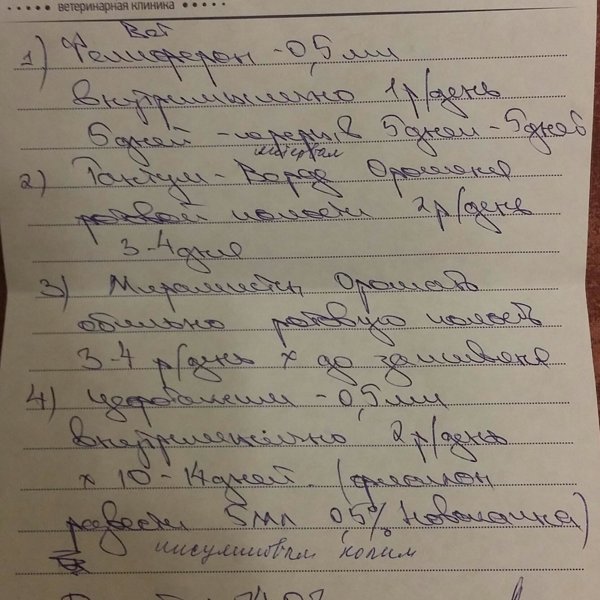 ветеринарная клиника
Вет
1) Фелиферон - 0,5 мл
внутримышечно 1 р/день
5 дней - перерыв 5 дней - 5 дней
интервал
2) Тантум - Верде Орошение
ротовой полости 2 р/день
3-4 дня
3) Мирамистин Орошать
обильно ротовую полость
3-4 р/день х до заживления
4) Цефотаксим - 0,5 мл
внутримышечно 2 р/день
х 10-14 дней. (флакон
развести 5 мл 0,5% Новокаина)
инсулиновым колим